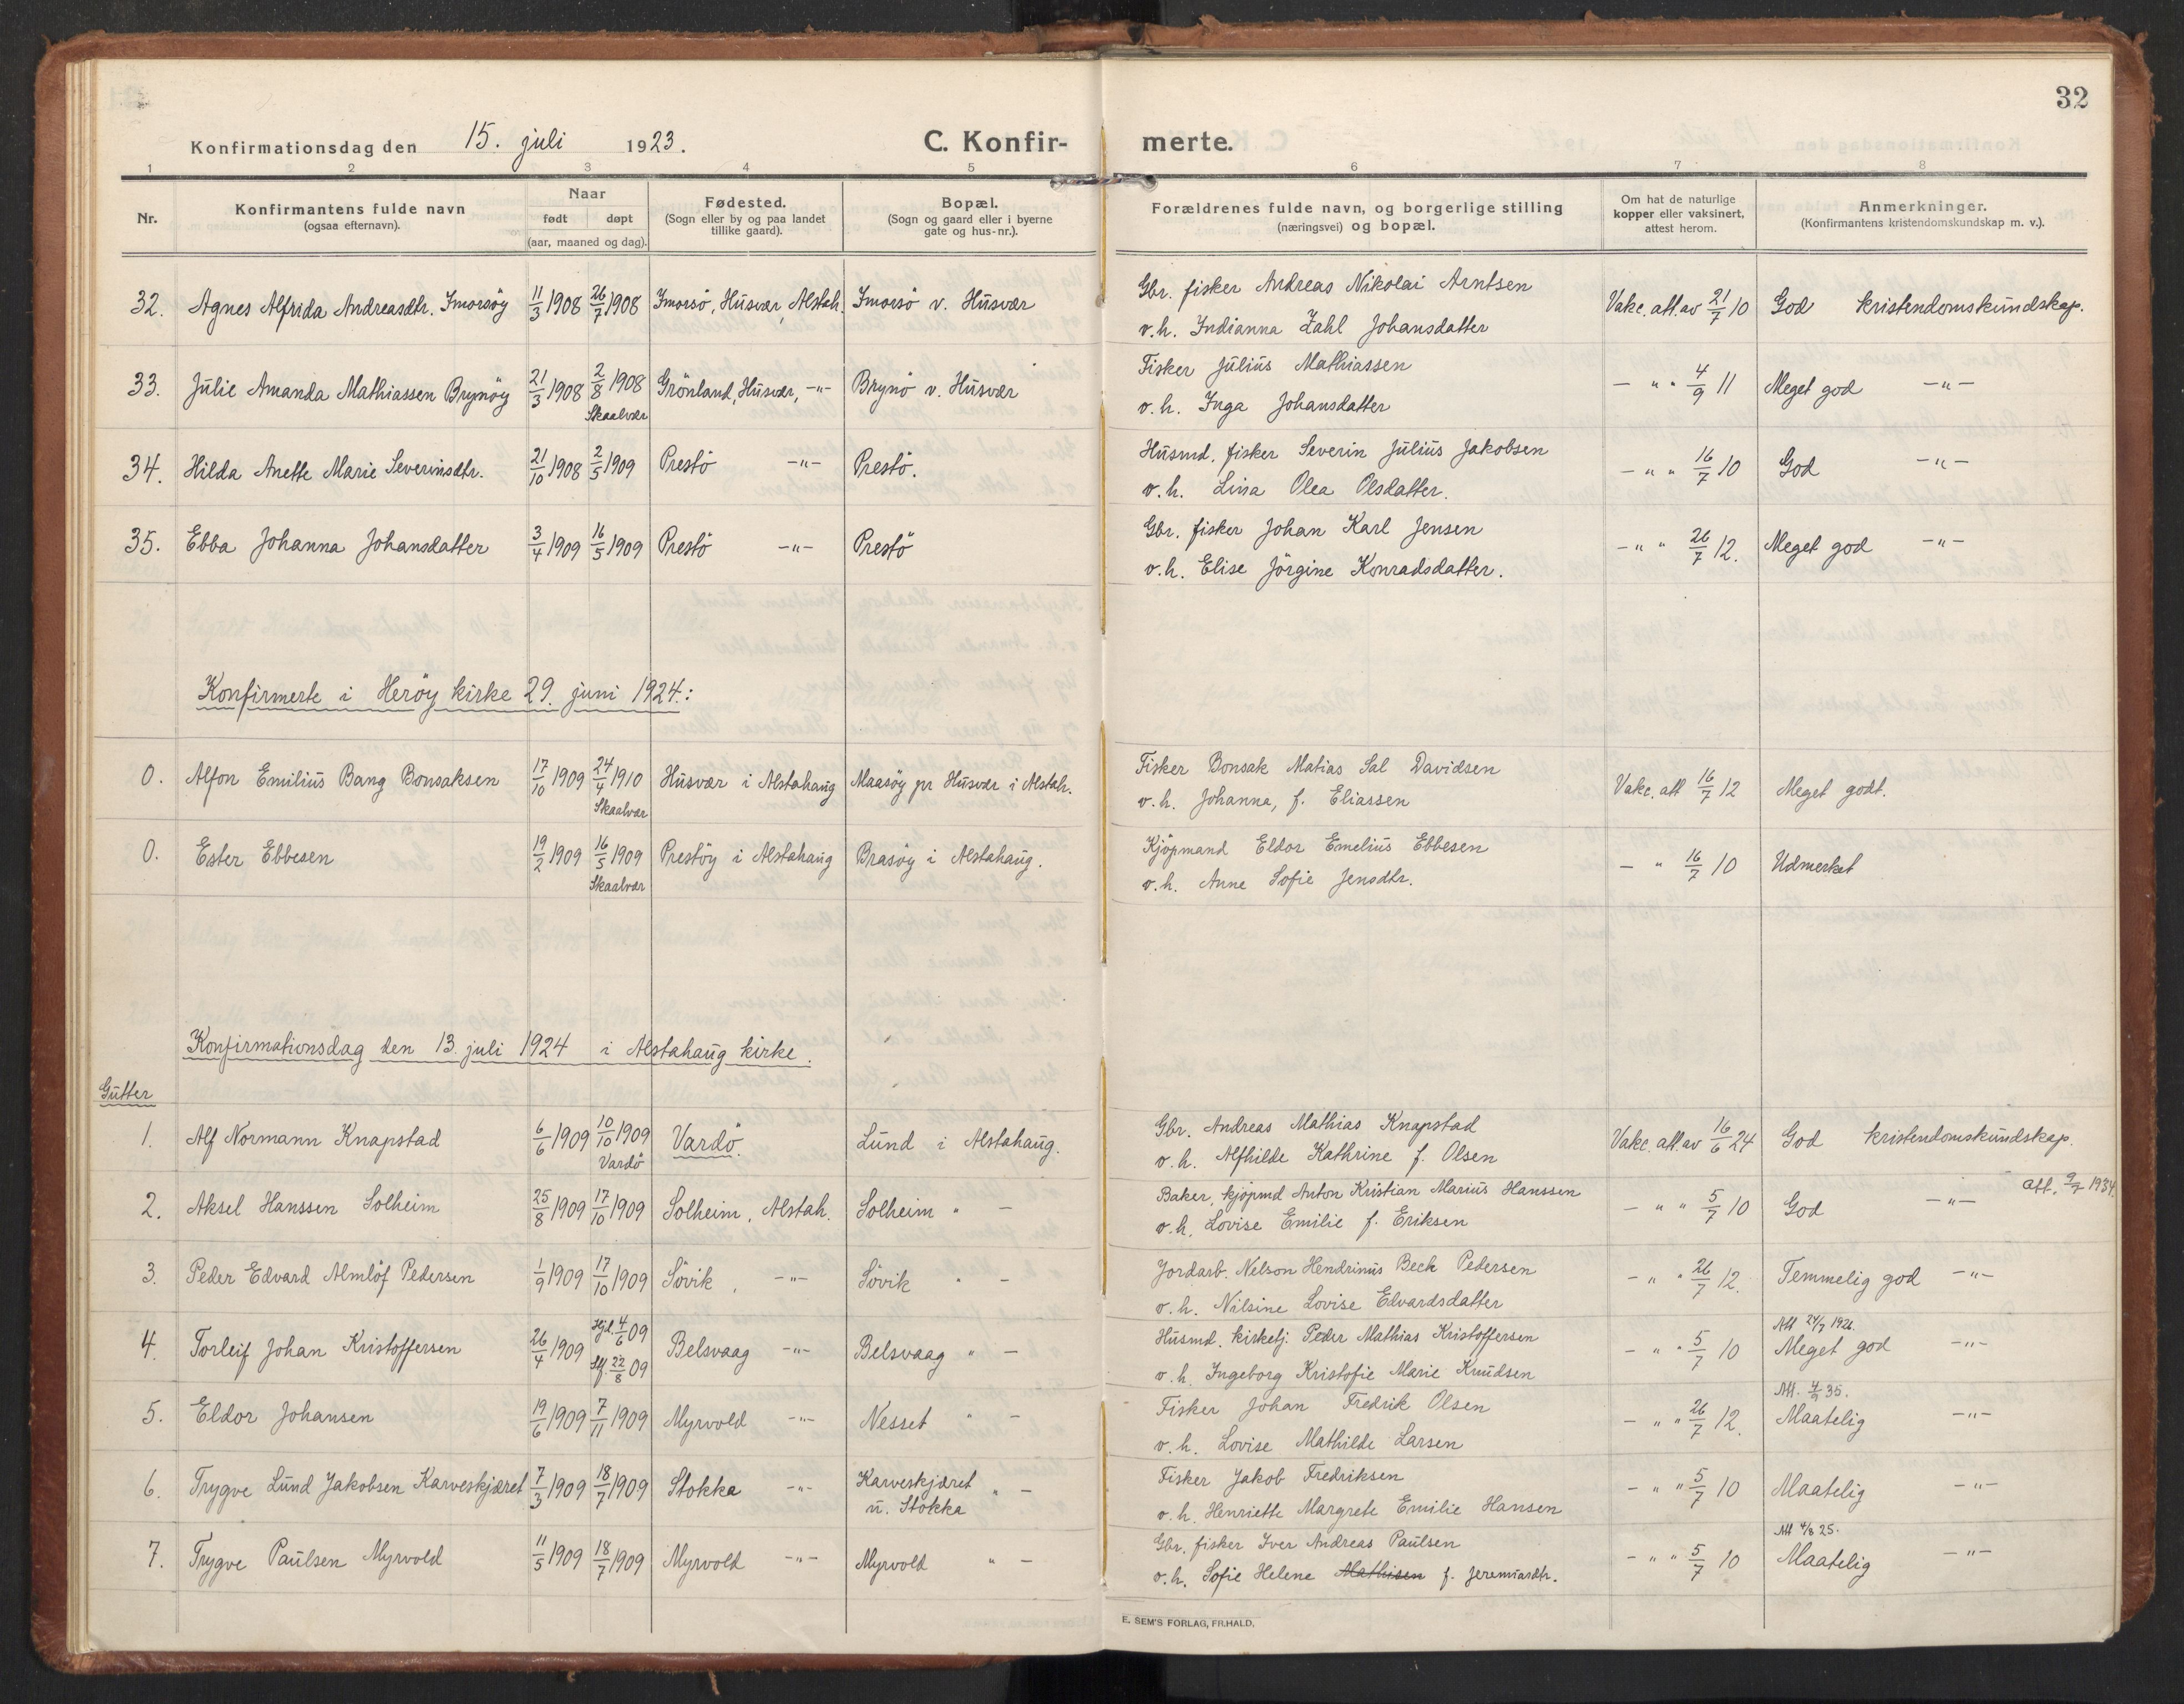 32
Konfirmationsdag den 15. juli 1923. C. Konfirmerte.
1 2 3 4 5 6 7 8
Nr. Konfirmantens fulde navn (ogsaa efternavn). Naar født døpt (aar, maaned og dag). Fødested. (Sogn eller by og paa landet tillike gaard). Bopæl. (Sogn og gaard eller i byerne gate og hus-nr.). Forældrenes fulde navn, og borgerlige stilling (næringsvei) og bopæl. Om hat de naturlige kopper eller vaksinert, attest herom. Anmerkninger. (Konfirmantens kristendomskundskap m. v.).
32. Agnes Alfrida Andreasdtr. Imorsöy 11/3 1908 26/7 1908 Imorsö, Husvær, Alstah. Imorsö v. Husvær Gbr. fisker Andreas Nikolai Arntsen Vakc. att. av 21/7 10 God kristendomskundskap.
o. h. Indianna Zahl Johansdatter
33. Julie Amanda Mathiassen Brynöy 21/3 1908 2/8 1908 Skaalvær Grönland, Husvær, -"- Brynö v. Husvær Fisker Julius Mathiassen - " " 4/9 11 Meget god -"-
o. h. Inga Johansdatter
34. Hilda Anette Marie Severinsdtr. 21/10 1908 2/5 1909 Prestö -"- Prestö. Husmd. fisker Severin Julius Jakobsen - " " 16/7 10 God -"-
o. h. Lina Olea Olsdatter.
35. Ebba Johanna Johansdatter 3/4 1909 16/5 1909 Prestö -"- Prestö Gbr. fisker Johan Karl Jensen - " " 26/7 12. Meget god -"-
o. h. Elise Jörgine Konradsdatter.
Konfirmerte i Heröy kirke 29. juni 1924.:
0. Alfon Emilius Bang Bonsaksen 17/10 1909 24/4 1910 Skaalvær Husvær i Alstahaug Maasöy pr Husvær i Alstah. Fisker Bonsak Matias Sal Davidsen Vakc. att 16/7 12 Meget godt.
o. h. Johanna, f. Eliassen
0. Ester Ebbesen 19/2 1909 16/5 1909 Skaalvær Prestöy i Alstahaug Brasöy i Alstahaug. Kjöpmand Eldor Emelius Ebbesen - " 16/7 10 Udmerket
o. h. Anne Sofie Jensdtr.
Konfirmationsdag den 13. juli 1924 i Alstahaug kirke.
Gutter
1. Alf Normann Knapstad 6/6 1909 10/10 1909 Vardö Vardö. Lund i Alstahaug. Gbr. Andreas Mathias Knapstad Vakc. att. av 16/6 24 God kristendomskundskap.
o. h. Alfhilde Kathrine f. Olsen
2. Aksel Hanssen Solheim 25/8 1909 17/10 1909 Solheim, Alstah. Solheim " - Baker, kjöpmd Anton Kristian Marius Hanssen - " " 5/7 10 God -"- Att. 9/7 1934.
o. h. Lovise Emilie f. Eriksen
3. Peder Edvard Almlöf Pedersen 1/9 1909 17/10 1909 Sövik -"- Sövik " - Jordarb. Nelson Hendrinus Beck Pedersen - " " 26/7 12. Temmelig god -"-
o. h. Nilsine Lovise Edvardsdatter
4. Torleif Johan Kristoffersen 26/4 1909 Hjd. 4/6 09 22/8 09 Belsvaag -"- Belsvaag " - Husmd. kirketj. Peder Mathias Kristoffersen - " " 5/7 10 Att 24/7 1926. Meget god -"-
o. h. Ingeborg Kristofie Marie Knudsen
5. Eldor Johansen 19/6 1909 7/11 1909 Myrvold -"- Nesset " - Fisker Johan Fredrik Olsen - " " 26/7 12. Att. 35. Maatelig -"-
o. h. Lovise Mathilde Larsen
6. Trygve Lund Jakobsen Karveskjæret 7/3 1909 18/7 1909 Stokka -"- Karveskjæret u. Stokka " - Fisker Jakob Fredriksen - " " 5/7 10 Maatelig -"-
o. h. Henriette Margrete Emilie Hansen
7. Trygve Paulsen Myrvold 11/5 1909 18/7 1909 Myrvold -"- Myrvold " - Gbr. fisker Iver Andreas Paulsen - " " 5/7 10 Att 4/8 25. Maatelig -"-
o. h. Sofie Helene Mathisen f. Jeremiasdtr.
E. SEM'S FORLAG, FR.HALD.